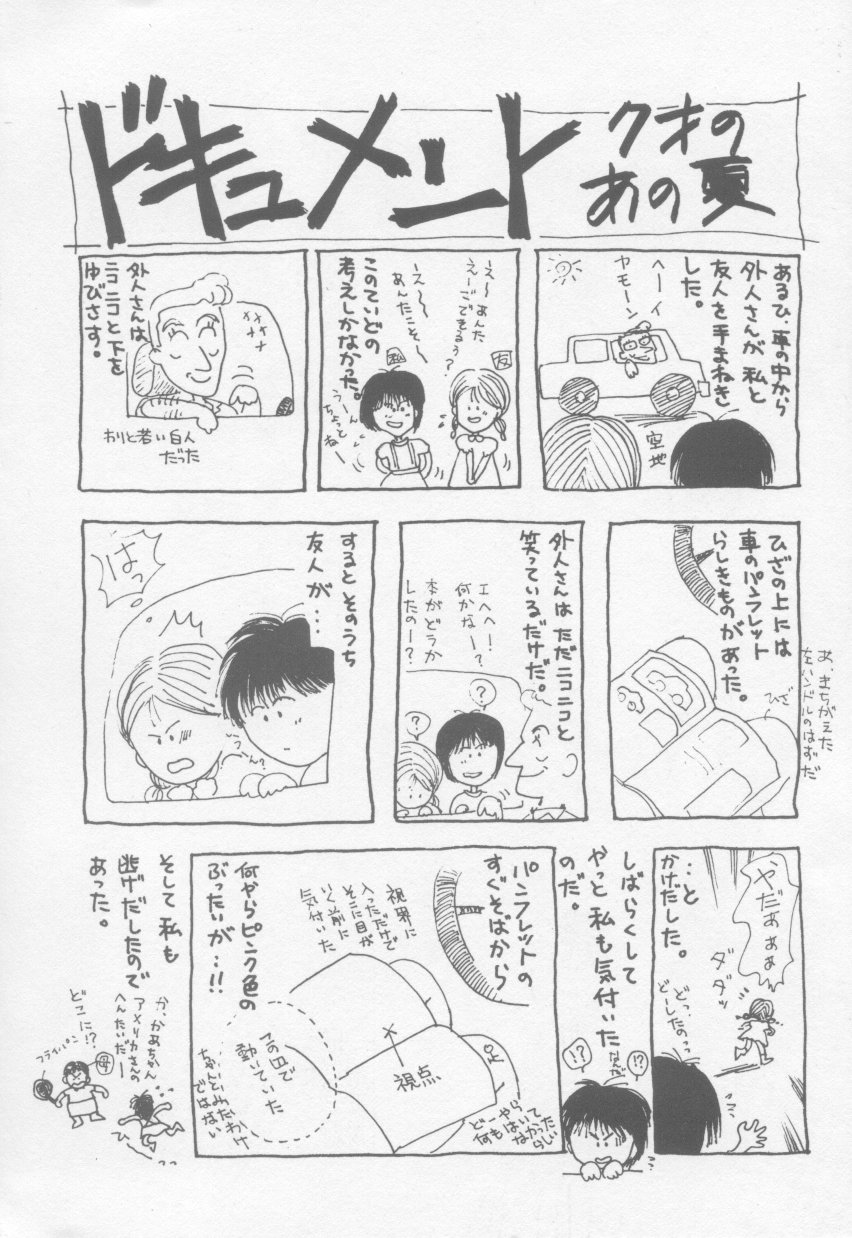 ドキュメント
クオの
あの夏
あるひ、車の中から
外人さんが私と
友人を手まねき
した。
ヘーイ
ヤモーン
空地
え〜あんた
えーごできるぅ？
え〜〜
あんたこそ〜
友
私
このていどの
考えしかなかった。
うーん
ちょっと
ねー
外人さんは
ニコニコと下を
ゆびさす。
わりと若い白人
だった
ひざの上には
車のパンフレット
らしきものがあった。
ひざ
あ、まちがえた
左ハンドルのはずだ
外人さんは ただニコニコと
笑っているだけだ。
エヘヘ！
何かなー？
本がどうか
したのー？
?
?
するとそのうち
友人が…
はっ
ん？
やだぁぁぁ
ダダッ
…と
かけだした。
どっ、
どーしたのっ
しばらくして
やっと私も気付いた
のだ。
なんだ
!?
!?
パンフレットの
すぐそばから
視界に
入っただけで
そこに目が
いく前に
気付いた
何やらピンク色の
ぶったいが…!!
視点
この辺で
動いていた
ちゃんとみたわけ
ではない
どーやら
何もはいて
なかったらしい
そして私も
逃げだしたので
あった。
か、かあちゃん
アメリカさんの
へんたいだー
どこに!?
フライパン
母